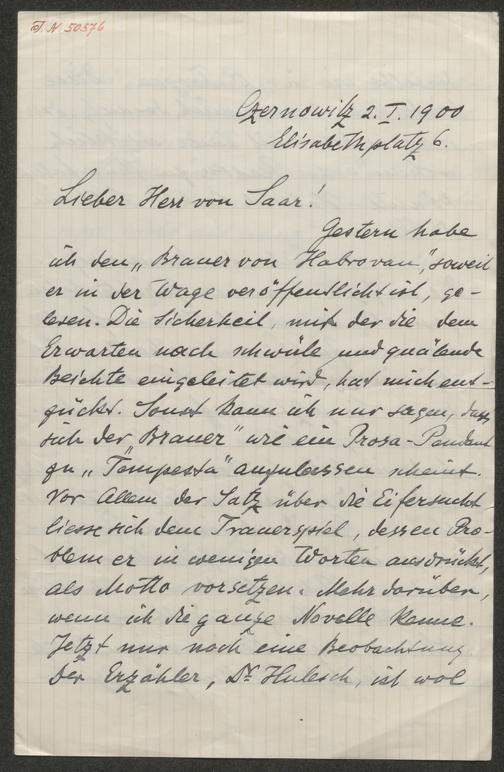 J. N. 50576
Czernowitz 2. I. 1900
Elisabethplatz 6.
Lieber Herr von Saar!
Gestern habe
ich den „Brauer von Habrovan", soweit
er in der Wage veröffentlicht ist, ge-
lesen. Die Sicherheit, mit der die dem
Erwarten nach schwüle und quälende
Beichte eingeleitet wird, hat mich ent-
zückt. Sonst kann ich nur sagen, dass
sich der „Brauer" wie ein Prosa-Pendant
zu „Tempesta" anzulassen scheint.
Vor Allem der Satz über die Eifersucht
liesse sich dem Trauerspiel, dessen Pro-
blem er in wenigen Worten ausdrückt,
als Motto vorsetzen. Mehr darüber,
wenn ich die ganze Novelle kenne.
Jetzt nur noch eine Beobachtung
Der Erzähler, Dr. Hulesch, ist wol